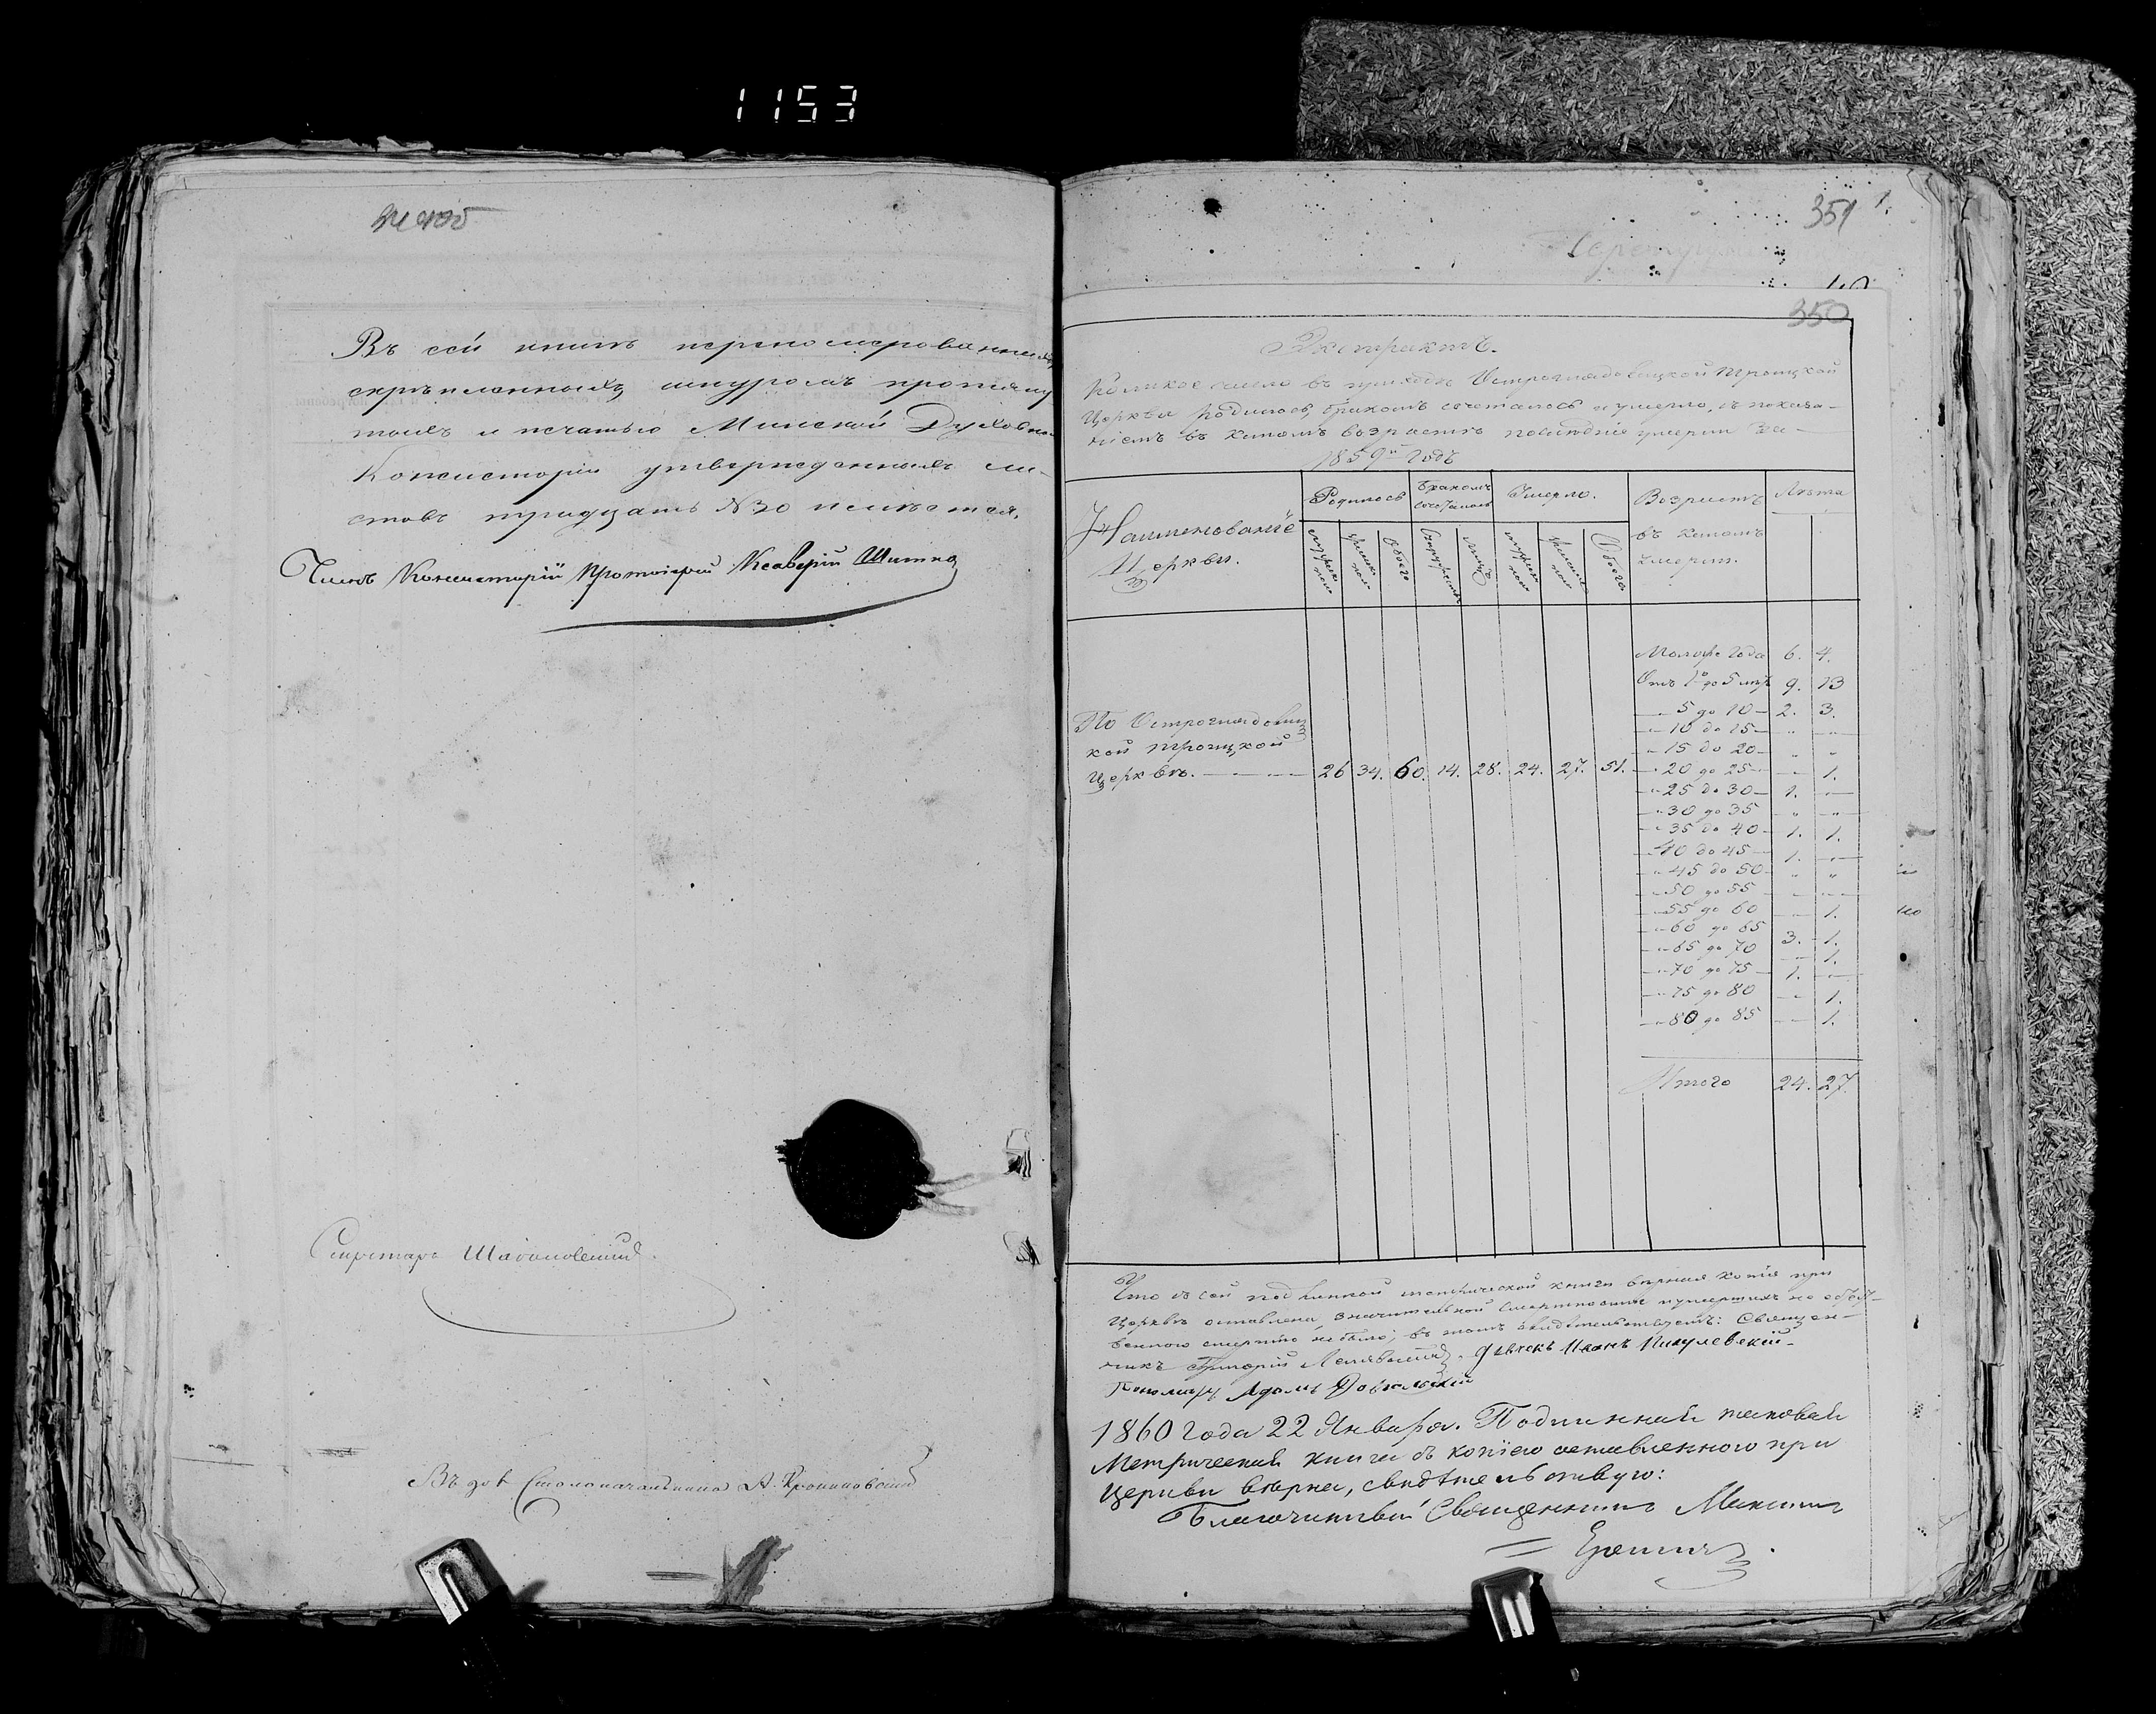 1153
Въ сей книгѣ перенумерованныхъ,
скрѣпленныхъ шнуромъ протяну
тымъ и печатью Минской Духовной
Консисторіи утвержденныхъ ли-
стовъ тридцать № 30 имѣется.
Членъ Консисторіи Протоіерей Ксаверій
Секретарь
Въ дол Столоначальника А.
351
350
Экстрактъ.
Коликое число въ приходѣ Остроглядовицкой Троицкой
Церкви родилось, бракомъ сочеталось и умерло, съ показа-
ніемъ въ какомъ возрастѣ послѣдніе умерли за-
1859й годъ
Наименованіе Церкви.
Родилось
Бракомъ сочеталось
Умерло.
Возрастъ въ какомъ умерли.
Лѣта
мужеска пола
женска пола
Обоего
Супружествъ
Лицъ
мужеска пола
женска пола
Обоего
По Острогляdовиц
кой Троицкой
Церквѣ. 26 34. 60. 14. 28. 24. 27. 51.
Моложе года 6. 4.
Отъ 1го до 5 лѣтъ 9. 13
" 5 до 10 2. 3.
" 10 до 15 " "
" 15 до 20 " "
" 20 до 25 " 1.
" 25 до 30 1. "
" 30 до 35 " "
" 35 до 40 1. 1.
" 40 до 45 1. "
" 45 до 50 " "
" 50 до 55 " "
" 55 до 60 " 1.
" 60 до 65 3. 1.
" 65 до 70 " 1.
" 70 до 75 1. "
" 75 до 80 " 1.
" 80 до 85 " 1.
Итого 24. 27.
Что съ сей подлинной метрической книги вѣрная копія при
Церквѣ оставлена, значительной смертности и умершихъ не
смертію небыло; въ томъ свидѣтельствуетъ: Священ-
никъ Григорій Дьячекъ Иванъ Пикулевскій
Пономарь Адамъ
1860 года 22 Января. Подлинная таковая
Метрическая книга съ копіею оставленною при
Церкви вѣрна, свидѣтельствую:
Благочинный Священникъ Максимъ